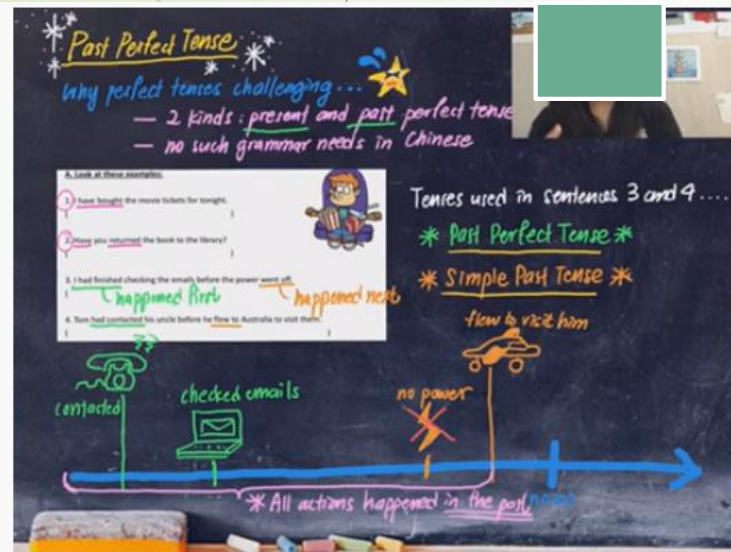 Past Perfect Tense
Why perfect tenses challenging...
— 2 kinds : present and past perfect tense
— no such grammar needs in Chinese
A. Look at these examples:
1. I have bought the movie tickets for tonight.
( )
2. Have you returned the book to the library?
( )
3. I had finished checking the emails before the power went off.
( happened first happened next
4. Tom had contacted his uncle before he flew to Australia to visit them.
( )
Tenses used in sentences 3 and 4....
* Past Perfect Tense *
* Simple Past Tense *
flew to visit him
contacted
checked emails
no power
* All actions happened in the past
now